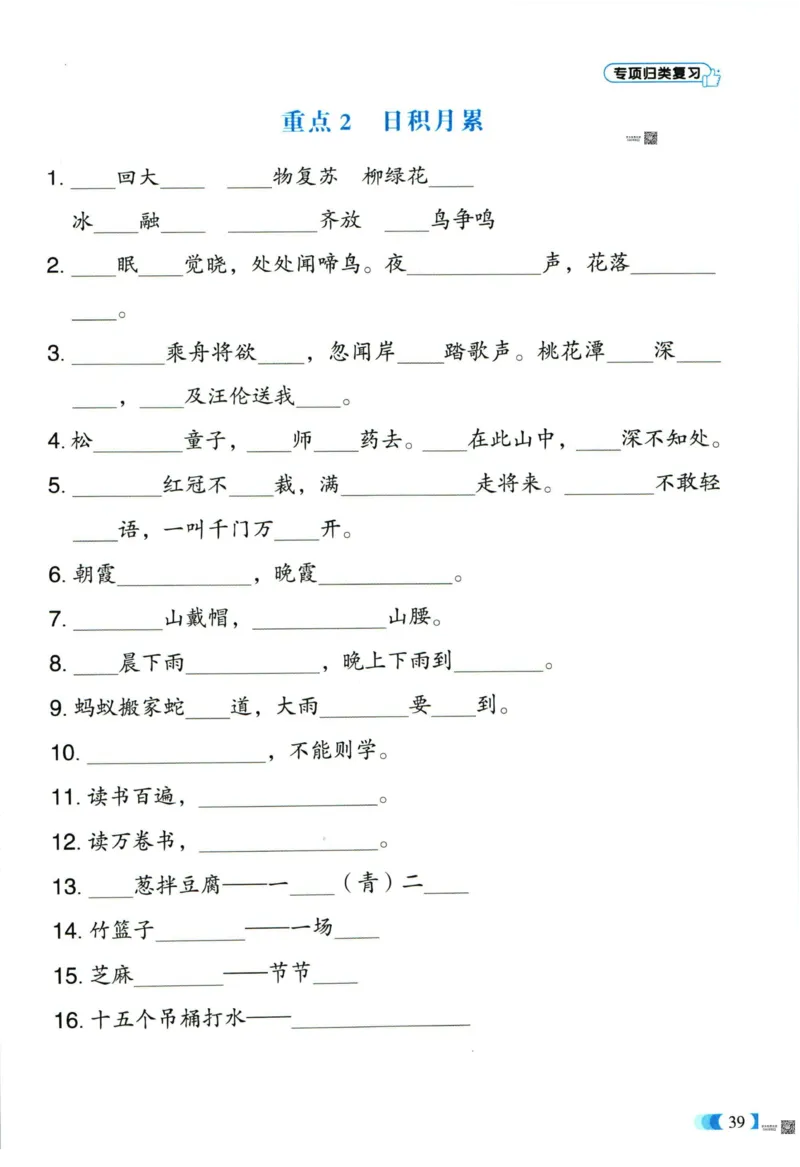 专项归类复习
重点 2 日积月累
1. ____回大____ ____物复苏 柳绿花____
冰____融____ ________齐放 ____鸟争鸣
2. ____眠____觉晓，处处闻啼鸟。夜____________声，花落________
____。
3. ________乘舟将欲____，忽闻岸____踏歌声。桃花潭____深____
____，____及汪伦送我____。
4. 松________童子，____师____药去。____在此山中，____深不知处。
5. ________红冠不____裁，满____________走将来。________不敢轻
____语，一叫千门万____开。
6. 朝霞____________，晚霞____________。
7. ________山戴帽，____________山腰。
8. ____晨下雨____________，晚上下雨到________。
9. 蚂蚁搬家蛇____道，大雨________要____到。
10. ________________，不能则学。
11. 读书百遍，________________。
12. 读万卷书，________________。
13. ____葱拌豆腐——一____（青）二____
14. 竹篮子________——一场____
15. 芝麻________——节节____
16. 十五个吊桶打水——________________
39